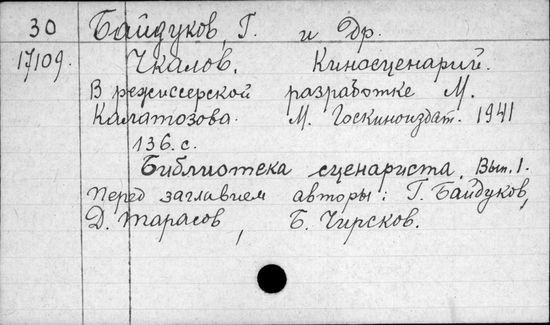 30 Байдуков, Г. и Др.
17109. Чкалов. Киносценарий.
В режиссерской разработке М.
Калатозова. М. Госкиноиздат. 1941
136. с.
Библиотека сценариста. Вып. 1.
Перед заглавием авторы: Г. Байдуков,
Д. Тарасов, Б. Чирсков.